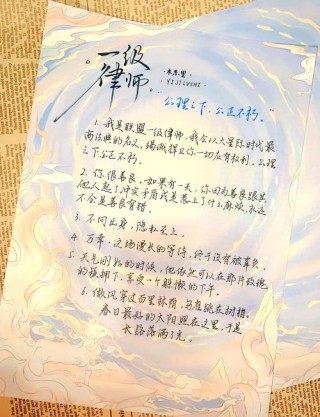 一级律师
·木苏里
·YIJILÜSHI·
“公理之下，公正不朽。”
1. 我是联盟一级律师，我会以大星际时代最
高法典的名义，竭诚捍卫你一切应有权利，公理
之下公正不朽。
2. 你很善良，如果有一天，你因为善良跟其
他人起了冲突矛盾或是惹上了什么麻烦，永远
不会是善良有错
3. 不问出身，隐私至上。
4. 万幸，这场漫长的等待，终于没有被辜负。
5. 天气刚好的时候，他依然可以在那片玫瑰
的簇拥下，享受一个躺懒的下午。
6. 微风穿过百里林荫，鸟雀跳在树梢。
春日最好的太阳照在这里，于是
长路落满了光。